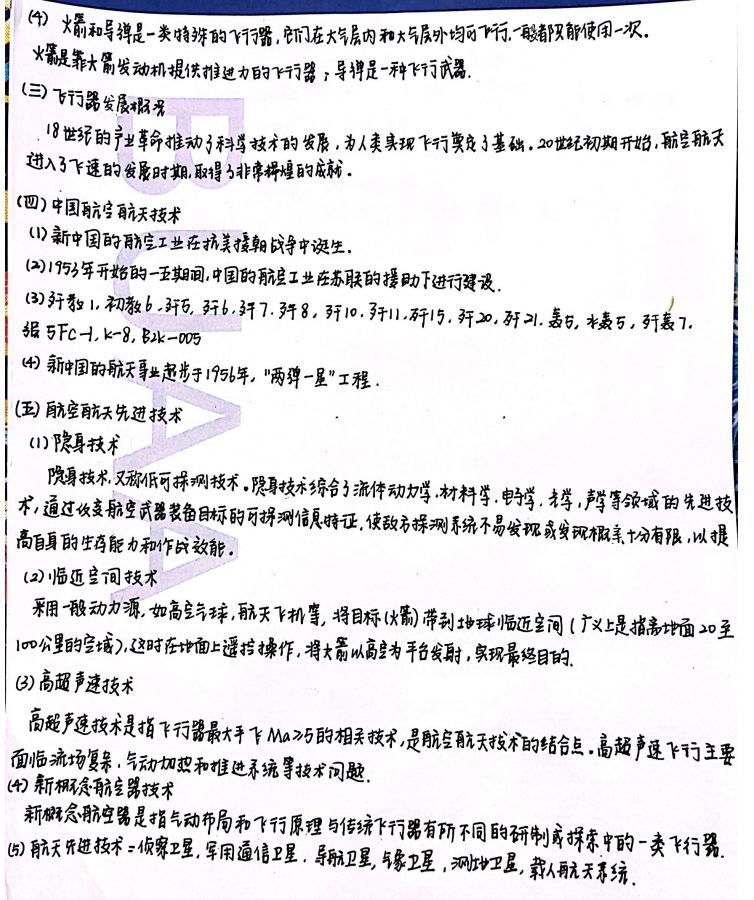 (4) 火箭和导弹是一类特殊的飞行器,它们在大气层内和大气层外均可飞行,一般都只能使用一次。
火箭是靠火箭发动机提供推进力的飞行器;导弹是一种飞行武器.
(三) 飞行器发展概况
18世纪的产业革命推动了科学技术的发展,为人类实现飞行奠定了基础。20世纪初期开始,航空航天
进入了飞速的发展时期,取得了非常辉煌的成就。
(四) 中国航空航天技术
(1) 新中国的航空工业在抗美援朝战争中诞生.
(2) 1953年开始的一五期间,中国的航空工业在苏联的援助下进行建设.
(3) 歼教1,初教6,歼5,歼6,歼7.歼8,歼10.歼11,歼15,歼20,歼21.轰5,水轰5,歼轰7.
强5 FC-1,K-8,BZK-005
(4) 新中国的航天事业起步于1956年,"两弹一星"工程.
(五) 航空航天先进技术
(1) 隐身技术
隐身技术,又称低可探测技术。隐身技术综合了流体动力学,材料学,电子学,光学,声学等领域的先进技
术,通过改变航空武器装备目标的可探测信息特征,使敌方探测系统不易发现或发现概率十分有限,以提
高自身的生存能力和作战效能。
(2) 临近空间技术
采用一般动力源,如高空气球,航天飞机等,将目标(火箭)带到地球临近空间(广义上是指离地面20至
100公里的空域),这时在地面上遥控操作,将火箭以高空为平台发射,实现最终目的.
(3) 高超声速技术
高超声速技术是指飞行器最大平飞Ma≥5的相关技术,是航空航天技术的结合点。高超声速飞行主要
面临流场复杂,气动加热和推进系统等技术问题.
(4) 新概念航空器技术
新概念航空器是指气动布局和飞行原理与传统飞行器有所不同的研制或探索中的一类飞行器.
(5) 航天先进技术=侦察卫星,军用通信卫星,导航卫星,气象卫星,测地卫星,载人航天系统.
BUAA